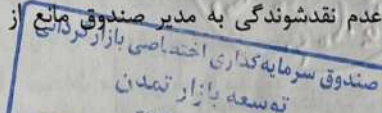 عدم نقدشوندگی به مدیر صندوق مانع از
صندوق سرمایه‌گذاری اختصاصی بازارگردانی
توسعه بازار تمدن